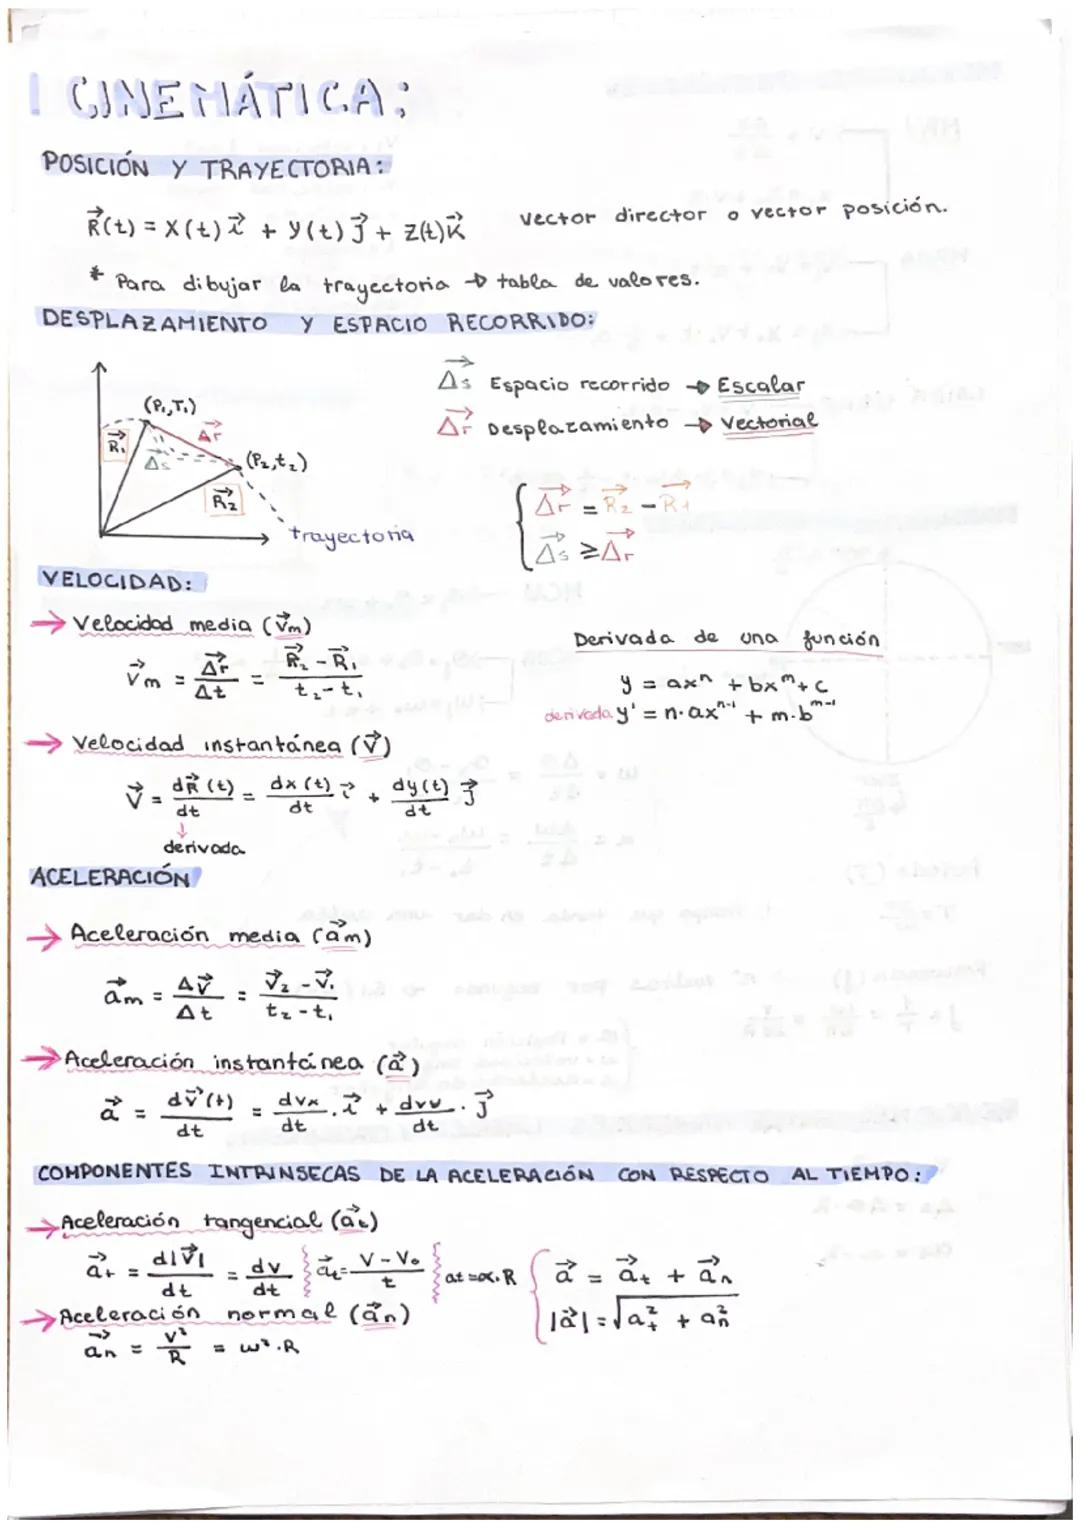 I CINEMÁTICA:
POSICIÓN Y TRAYECTORIA:
R⃗(t) = X(t) i⃗ + y(t) j⃗ + z(t) k⃗   vector director o vector posición.
* Para dibujar la trayectoria → tabla de valores.
DESPLAZAMIENTO Y ESPACIO RECORRIDO:
Δs⃗ Espacio recorrido → Escalar
Δr⃗ Desplazamiento → Vectorial
(P₁,T₁)
R⃗₁
Δr⃗
Δs⃗
(P₂,t₂)
R⃗₂
trayectoria
Δr⃗ = R⃗₂ - R⃗₁
Δs⃗ ≥ Δr⃗
VELOCIDAD:
→ Velocidad media (v⃗m)
v⃗m = Δr⃗/Δt = (R⃗₂ - R⃗₁)/(t₂ - t₁)
Derivada de una función
y = axⁿ + bxᵐ + c
derivada y' = n·axⁿ⁻¹ + m·bᵐ⁻¹
→ Velocidad instantánea (v⃗)
v⃗ = dR⃗(t)/dt = dx(t)/dt i⃗ + dy(t)/dt j⃗
↓
derivada
ACELERACIÓN
→ Aceleración media (a⃗m)
a⃗m = Δv⃗/Δt = (v⃗₂ - v⃗₁)/(t₂ - t₁)
→ Aceleración instantánea (a⃗)
a⃗ = dv⃗(t)/dt = dvx/dt · i⃗ + dvy/dt · j⃗
COMPONENTES INTRINSECAS DE LA ACELERACIÓN CON RESPECTO AL TIEMPO:
→ Aceleración tangencial (a⃗t)
a⃗t = d|v⃗|/dt = dv/dt   a⃗t = (V - V₀)/t   at = α·R
a⃗ = a⃗t + a⃗n
→ Aceleración normal (a⃗n)
|a⃗| = √(at² + an²)
a⃗n = v²/R = ω²·R